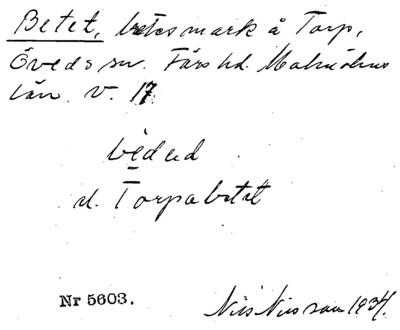 Betet, betesmark å Torp,
Öveds sn. Färs hd. Malmöhus
län. V. 17.
bēdəd
el. Torpabetet
Nr 5603.
Nils Nilsson 1934.